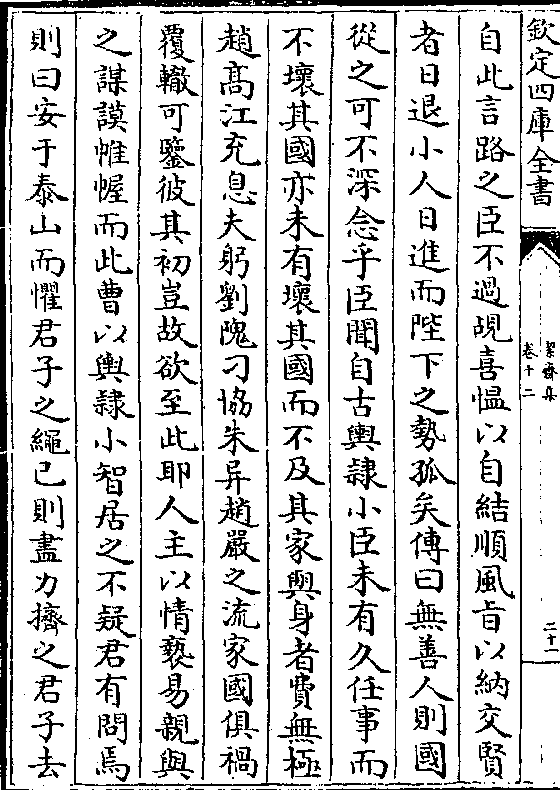 欽定四庫全書
絜齋集
卷十二
二十
自此言路之臣不過覘喜愠以自結順風旨以納交賢
者日退小人日進而陛下之勢孤矣傳曰無善人則國
從之可不深念乎臣聞自古輿隸小臣未有久任事而
不壞其國亦未有壞其國而不及其家與身者費無極
趙高江充息夫躬劉隗刁協朱异趙嚴之流家國俱禍
覆轍可鑒彼其初豈故欲至此耶人主以情褻易親與
之謀謨帷幄而此曹以輿隸小智居之不疑君有問焉
則曰安于泰山而懼君子之繩已則盡力擠之君子去